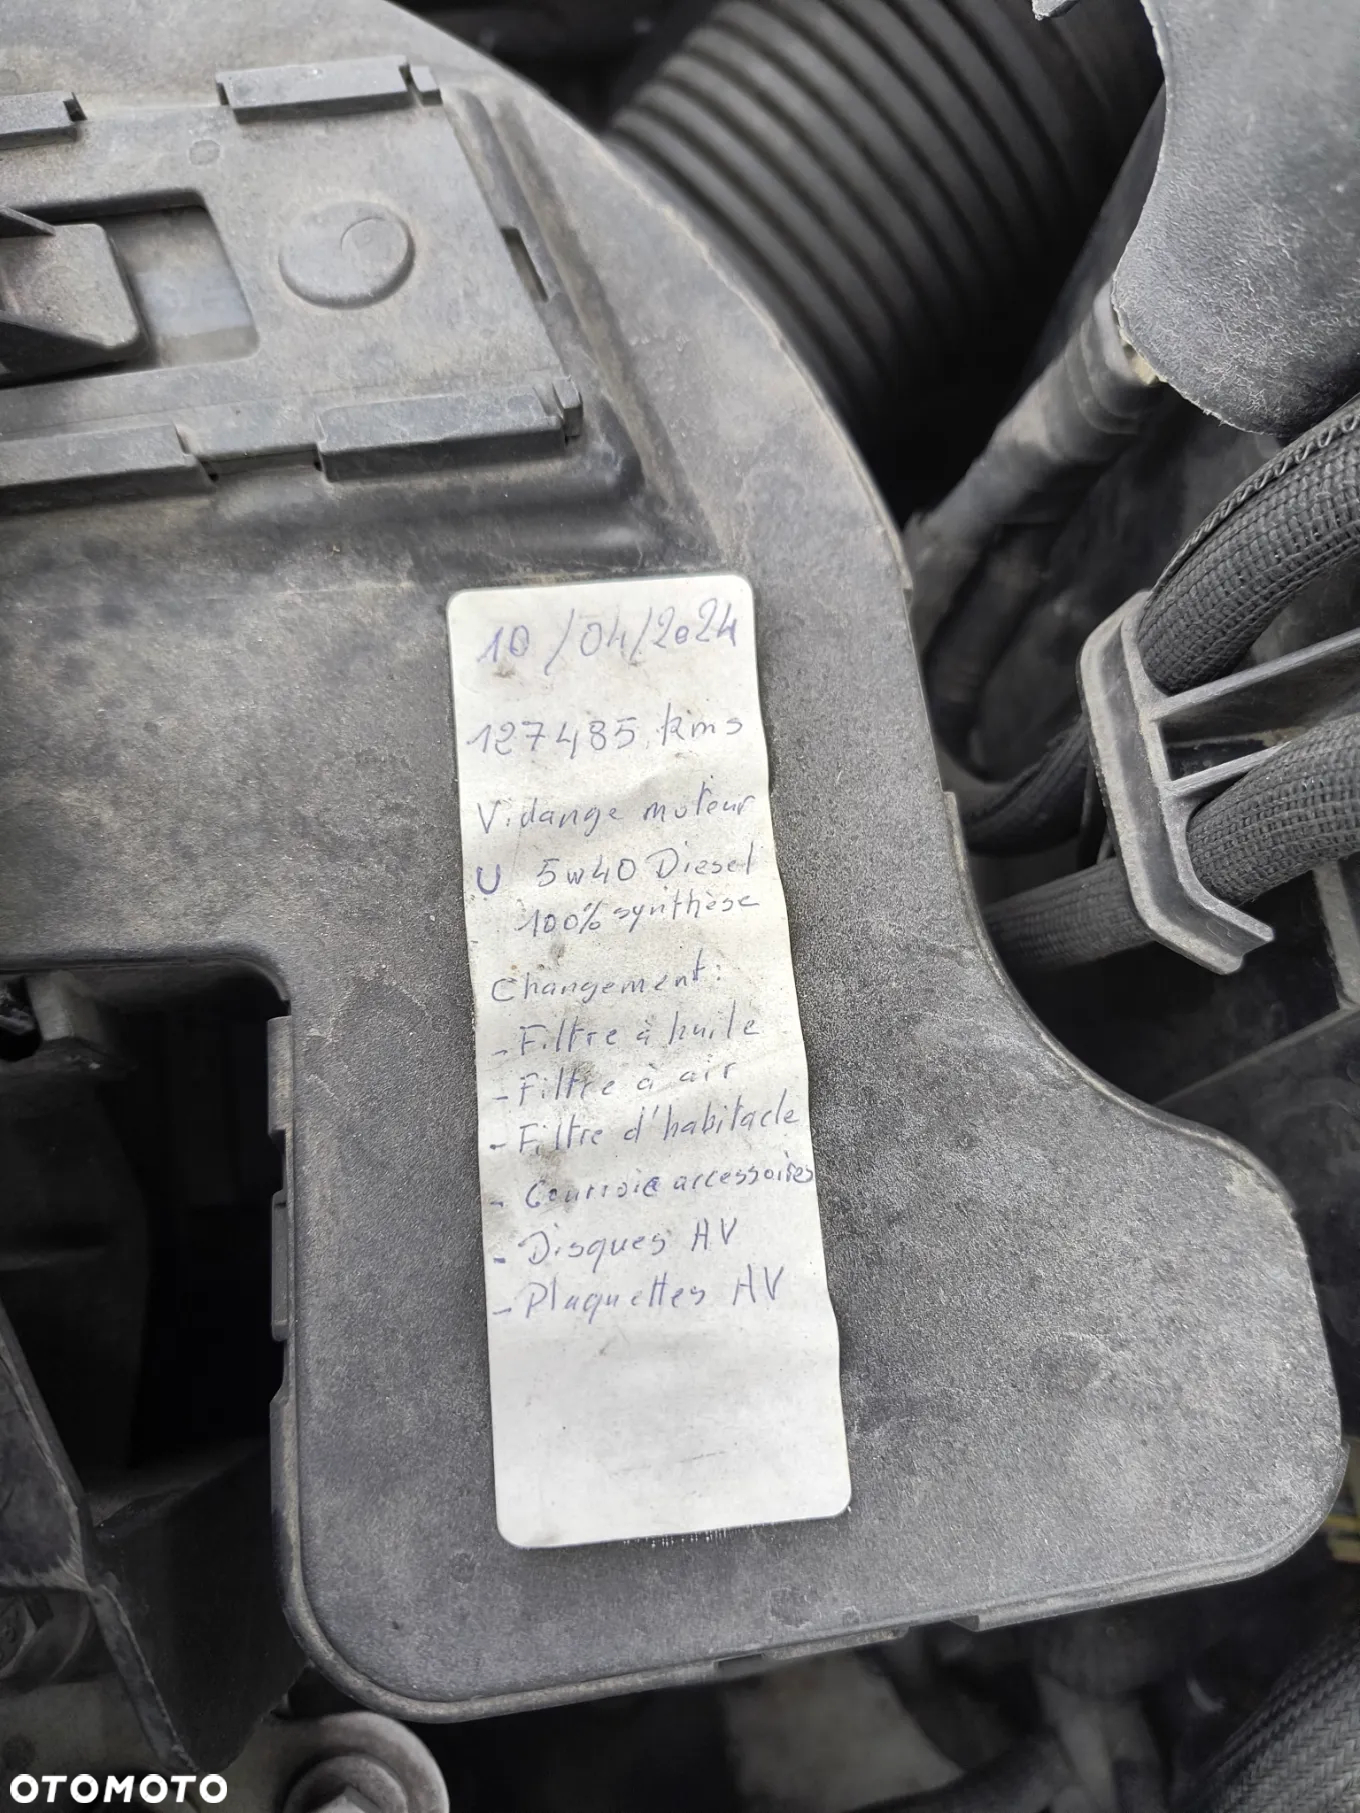 10/04/2024
127485 kms
Vidange moteur
U 5w40 Diesel
100% synthèse
Changement:
- Filtre à huile
- Filtre à air
- Filtre d'habitacle
- Courroie accessoires
- Disques AV
- Plaquettes AV
OTOMOTO